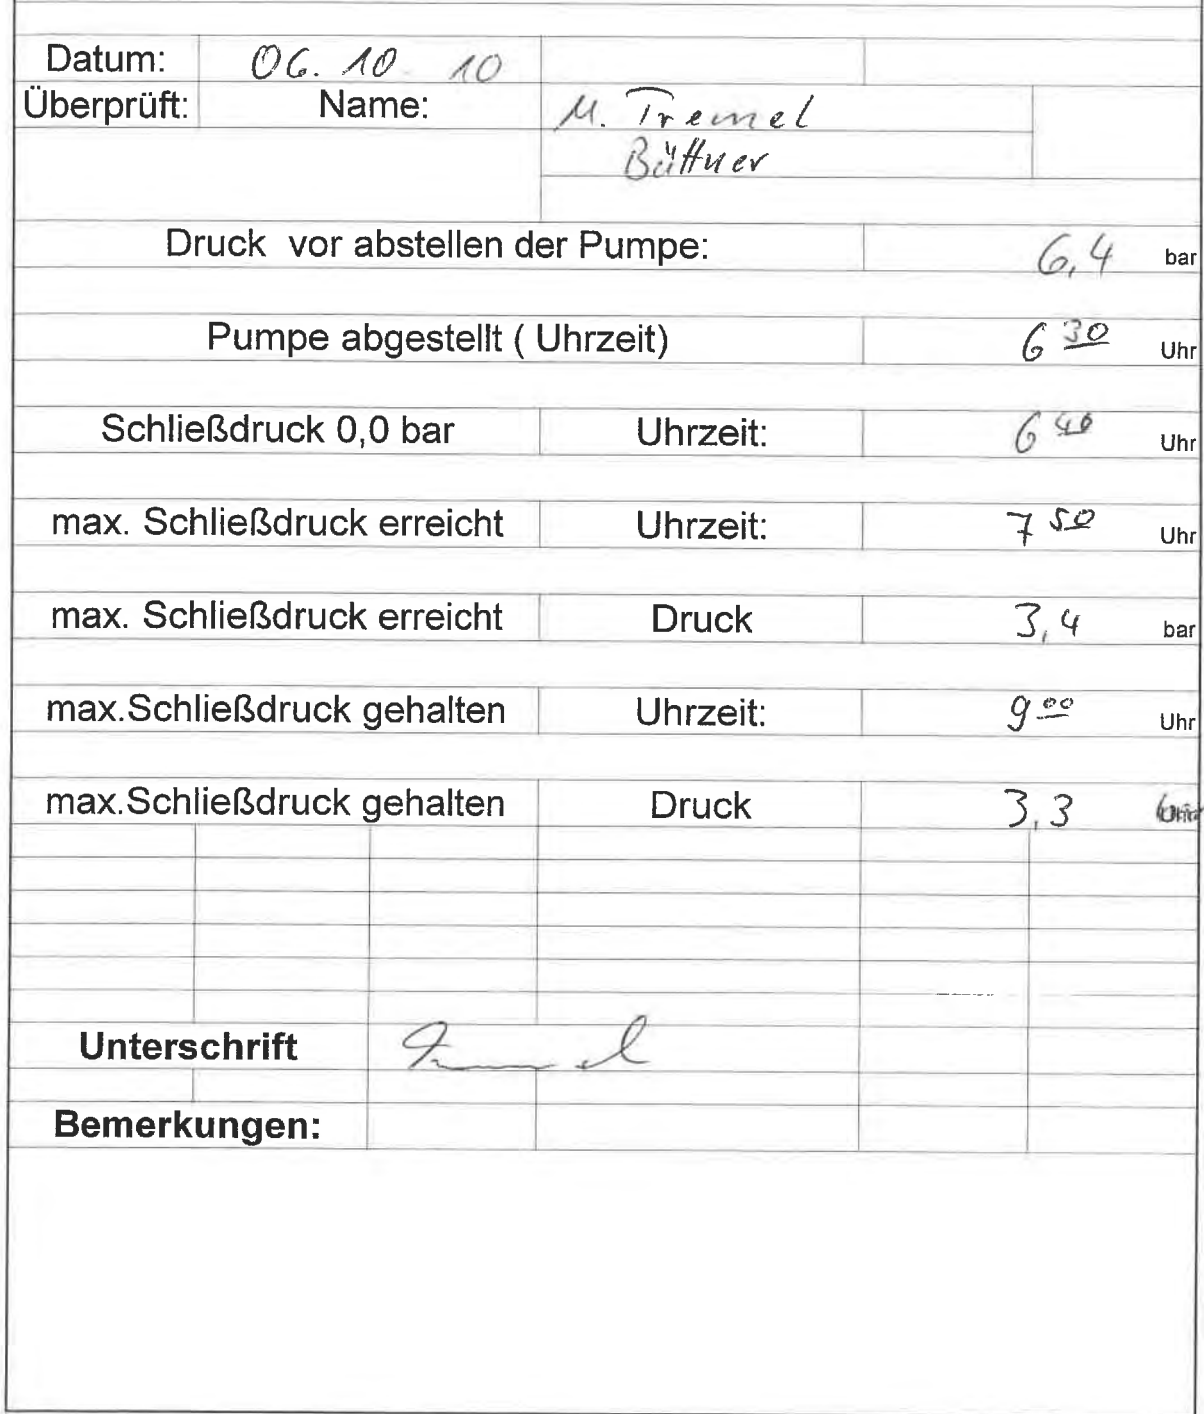 Datum: 06. 10 10
Überprüft: Name: M. Tremel
Büttner
Druck vor abstellen der Pumpe: 6,4 bar
Pumpe abgestellt ( Uhrzeit) 6 30 Uhr
Schließdruck 0,0 bar Uhrzeit: 6 40 Uhr
max. Schließdruck erreicht Uhrzeit: 7 50 Uhr
max. Schließdruck erreicht Druck 3,4 bar
max.Schließdruck gehalten Uhrzeit: 9 00 Uhr
max.Schließdruck gehalten Druck 3,3
Unterschrift Tremel
Bemerkungen: